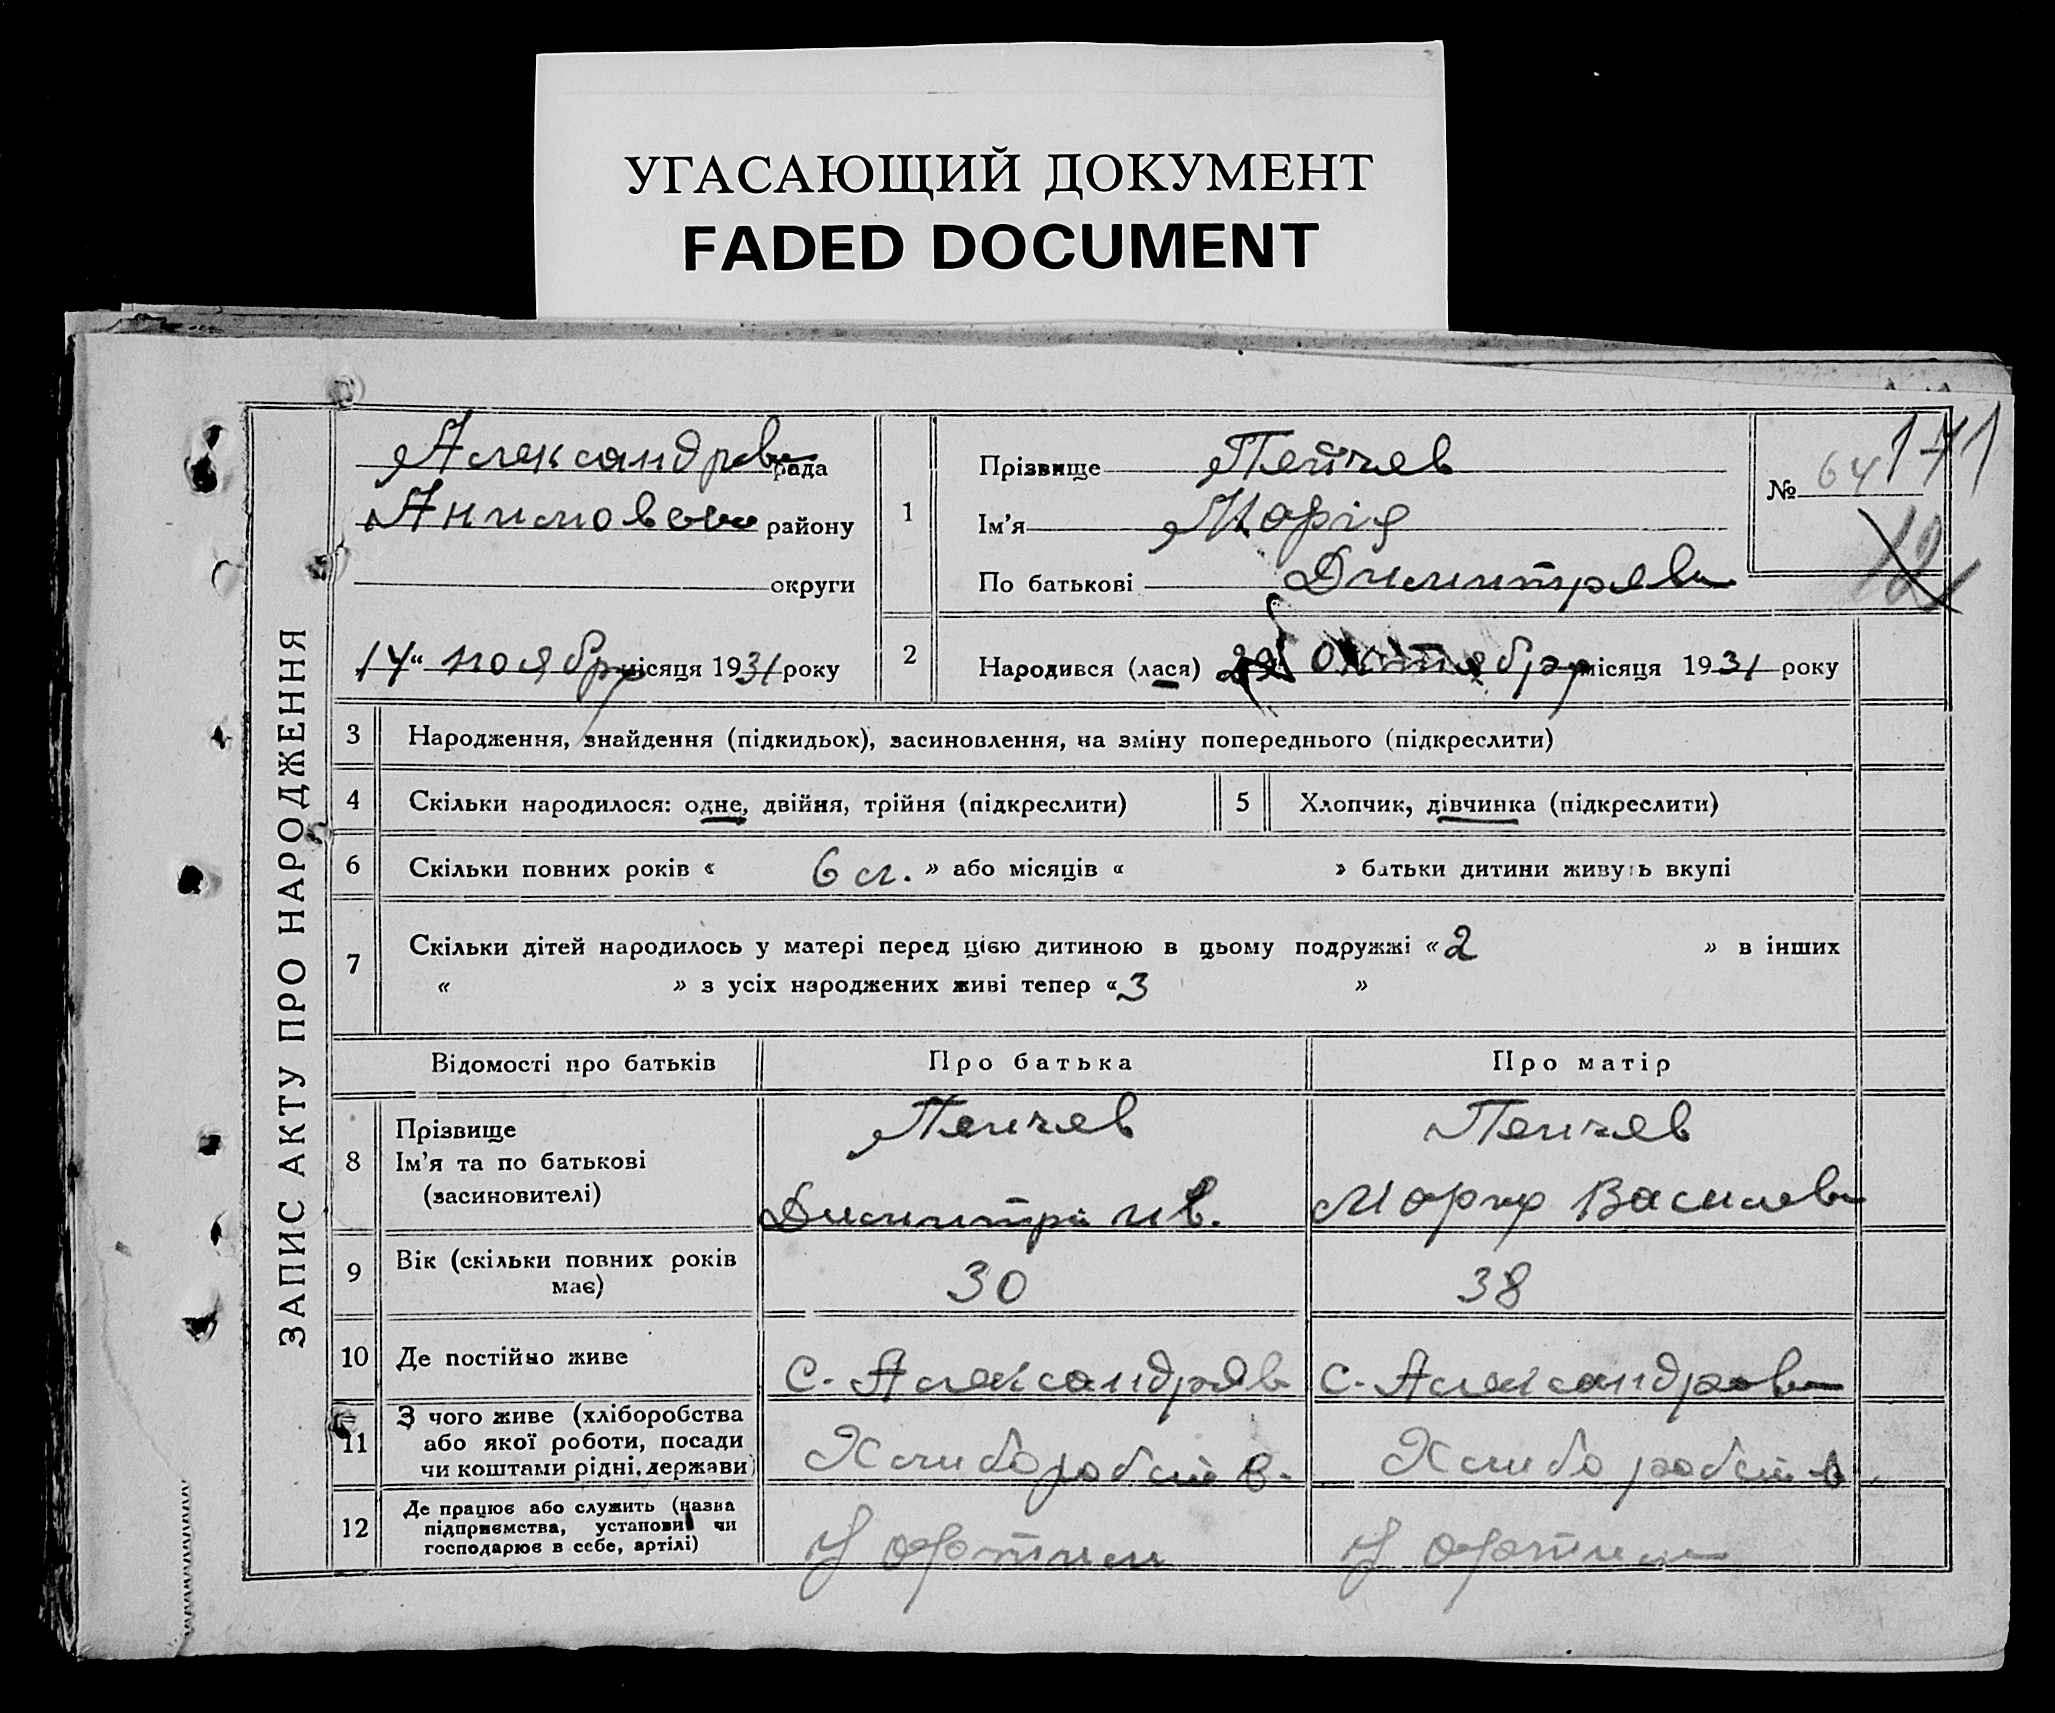 УГАСАЮЩИЙ ДОКУМЕНТ
FADED DOCUMENT
ЗАПИС АКТУ ПРО НАРОДЖЕННЯ
Александров рада
району
округи
14 " ноября місяця 1931 року
1
Прізвище Пейчев
Ім'я Марія
По батькові Димитров
№ 64 171
12
2
Народився (лася) октября місяця 1931 року
3 Народження, знайдення (підкидьок), засиновлення, на зміну попереднього (підкреслити)
4 Скільки народилося: одне, двійня, трійня (підкреслити)
5 Хлопчик, дівчинка (підкреслити)
6 Скільки повних років « 6 л. » або місяців « » батьки дитини живуть вкупі
7 Скільки дітей народилось у матері перед цією дитиною в цьому подружжі « 2 » в інших
« » з усіх народжених живі тепер « 3 »
Відомості про батьків Про батька Про матір
8 Прізвище
Ім'я та по батькові
(засиновителі)
Пейчев
Димитрий ив.
Пейчев
Мария Василев
9 Вік (скільки повних років
має)
30 38
10 Де постійно живе с. Александров с. Александров
11 З чого живе (хліборобства
або якої роботи, посади
чи коштами рідні, держави)
Хлиборобств. Хлиборобств.
12 Де працює або служить (назва
підприємства, установи чи
господарює в себе, артілі)
У артили У артили